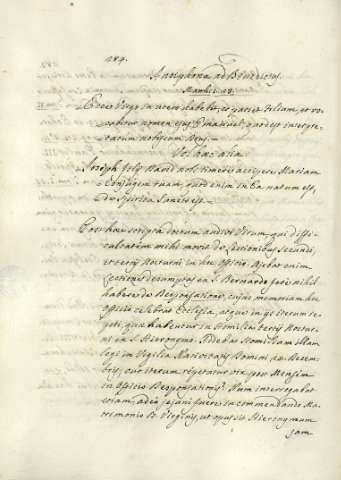 184.
Antiphona ad Benedictus.
Matthæi
Ecce Virgo in utero habebit, et pariet Filium, et vo-
cabitur nomen ejus Emanuel, quod est interpre-
tatum nobiscum Deus.
Vel hæc alia.
Joseph Fili David noli timere accipere Mariam
Conjugem tuam, quod enim in Ea natum est,
de Spiritu Sancto est.
Post hæc scripta doctum audivi Virum, qui diffi-
cultatem mihi movit de Lectionibus secundi,
et tertij Nocturni in hoc officio. Ajebat enim
Lectiones desumptas ex S. Bernardo fere nihil
habere de Desponsatione, cujus memoriam hoc
officio celebrat Ecclesia, atque in ijs iterum re-
peti, quæ habentur in Homilia tertij Noctur-
ni ex S. Hieronymo. Videbat Homiliam illam
legi in Vigilia Nativitatis Domini de Decem-
bris, cur iterum repetatur vix per Mensem
in officio Desponsationis? Num interrogabat
etiam, adeo jejuni Patres in commendando Ma-
trimonio B. Virginis, ut opus sit Hieronymum
jam